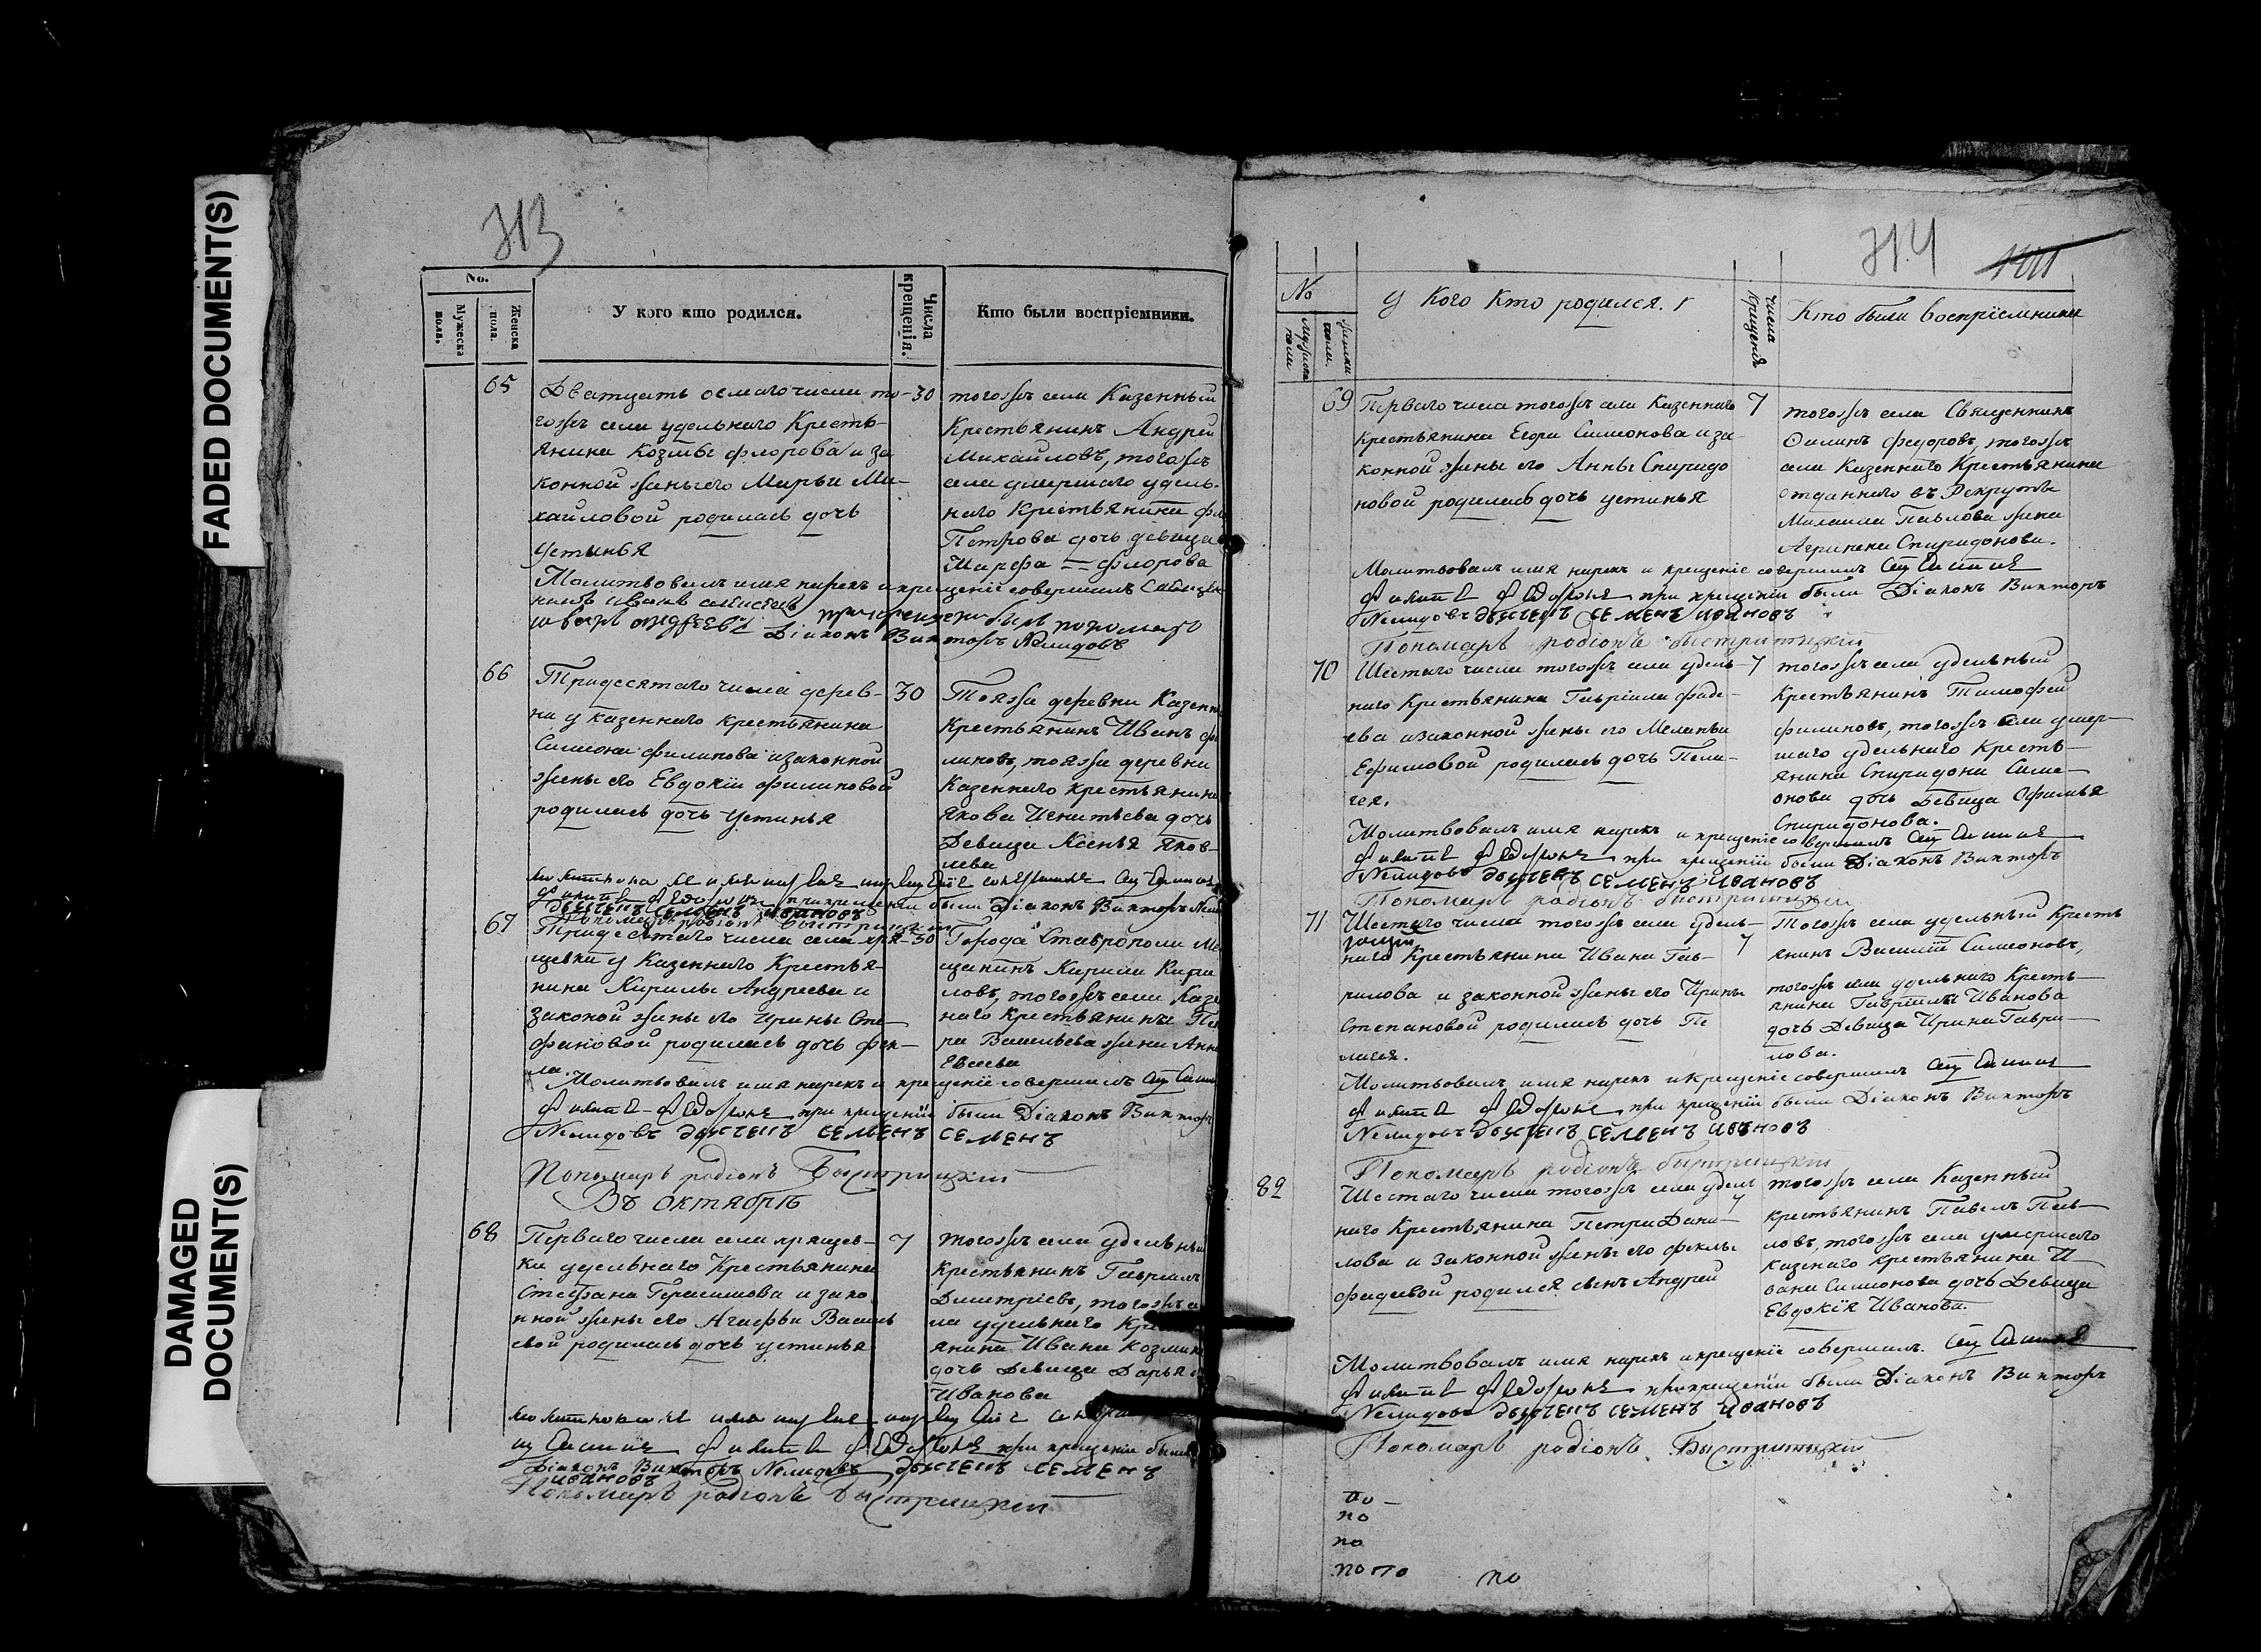 FADED DOCUMENT(S)
DAMAGED
DOCUMENT(S)
No.
Мужеска пола.
Женска пола.
У кого кто родился.
Числа крещенія.
Кто были воспріемники.
65
Дватцать осмаго числа то-
30
гожъ села удельнаго Кресть-
янина Козмы Флорова и за
конной жены его Марьи Ми-
хайловой родилась дочь
Устинья
тогожъ села Казенный
Крестьянинъ Андрей
Михайловъ, тогожъ
села умершаго удель-
наго Крестьянина
Петрова дочь девица
Марфа Флорова
Молитвовалъ имя нарекъ и крещеніе совершилъ
Діаконъ Викторъ Нелидовъ
66
Тридесятаго числа дерев-
30
ни у казеннаго крестьянина
Симиона Филипова и законной
жены его Евдокіи Филиповой
родилась дочь Устинья
Тояжа деревни
Крестьянинъ Иванъ
ликовъ, тояжа деревни
Казеннаго крестьянина
Якова Игнатьева дочь
Девица Ксенья Яков-
лева
при крещеніи были Діаконъ Викторъ
67
Тридесятаго числа села хря-
30
щевки у Казеннаго Крестья-
нина Кирилы Андреева и
законой жены его Ирины Сте-
фановой родилась дочь Фек-
ла.
Города Ставрополя Ме
щанинъ Кирила Кири
ловъ, тогожъ села
наго крестьянина
ра Васильева жена Анна
Евсеева
Молитвовалъ имя нарекъ и крещеніе совершилъ
при крещеніи были Діаконъ Викторъ
Нелидовъ дьячекъ семенъ семенъ
Пономарь родіонъ Быстрицкій
Въ Октябрѣ
68
Перваго числа села хрящев-
7
ки удельнаго Крестьянина
Стефана Герасимова и зако
нной жены его Агафьи Василь
евой родилась дочь устинья
тогожъ села удельный
Крестьянинъ Гаврилъ
Димитріевъ, тогожъ се
ла удельнаго
янина Ивана Козмина
дочь Девица Дарья
Иванова
при крещеніи были
Діаконъ Викторъ Нелидовъ дьячекъ семенъ
ивановъ
Пономарь родіонъ Быстрицкій
No
мужеска пола
женска пола
У кого Кто родился.
числа Крещенія
Кто были воспріемники
69
Перваго числа тогожъ села Казеннаго
7
крестьянина Егора Симионова и за-
конной жены его Анны Спиридо
новой родилась дочь устинья
тогожъ села Священникъ
Филипъ Федоровъ, тогожъ
села Казеннаго Крестьянина
отданнаго въ Рекруты
Михаила Павлова жена
Агрипена Спиридонова.
Молитвовалъ имя нарекъ и крещеніе совершилъ
при крещеніи были Діаконъ Викторъ
Нелидовъ дьячекъ семенъ ивановъ
Пономарь родіонъ быстрицкій
70
Шестаго числа тогожъ села удель-
7
наго Крестьянина Гавріила Фаде-
ева и законной жены его Меланьи
Ефимовой родилась дочь Пела-
гея.
тогожъ села удельный
Крестьянинъ Тимофей
Филиповъ, тогожъ села умер-
шаго удельнаго Кресть-
янина Спиридона Симе-
онова дочь Девица Офимья
Спиридонова.
Молитвовалъ имя нарекъ и крещеніе совершилъ
при крещеніи были Діаконъ Викторъ
Нелидовъ дьячекъ семенъ ивановъ
Пономарь родіонъ быстрицкій
71
Шестаго числа тогожъ села удель-
7
наго Крестьянина Ивана Гав-
рилова и законной жены его Ирины
Степановой родилась дочь Пе
лагея.
Тогожъ села удельный Кресть
янинъ Василіе Симеоновъ,
тогожъ села удельнаго Кресть-
янина Гаврилы Иванова
дочь Девица Ирина Гаври-
лова.
Молитвовалъ имя нарекъ и крещеніе совершилъ
при крещеніи были Діаконъ Викторъ
Нелидовъ дьячекъ семенъ ивановъ
Пономарь родіонъ быстрицкій
82
Шестаго числа тогожъ села удель
7
наго Крестьянина Петра Дани-
лова и законной жены его Феклы
Фадеевой родился сынъ Андрей
тогожъ села Казенный
крестьянинъ Павелъ Пав-
ловъ, тогожъ села умершаго
казенаго крестьянина И-
вана Симионова дочь Девица
Евдокія Иванова.
Молитвовалъ имя нарекъ и крещеніе совершилъ.
при крещеніи были Діаконъ Викторъ
Нелидовъ дьячекъ семенъ ивановъ
Пономарь родіонъ Быстрицкій
по
по
по
по по по